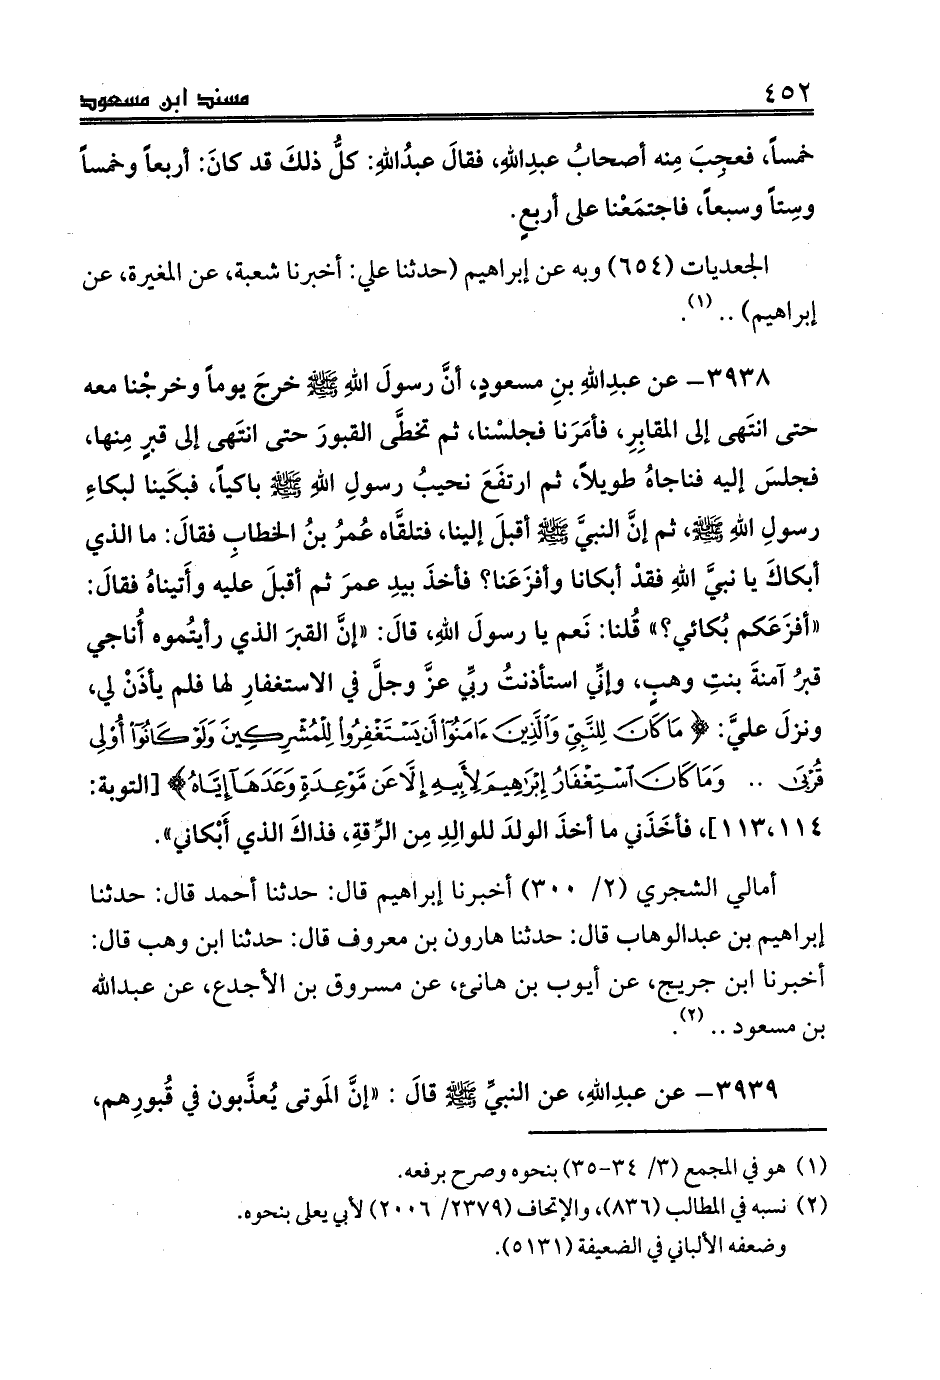 ٤٥٢ مسند ابن مسعود
خمساً، فعجِبَ مِنه أصحابُ عبدِاللهِ، فقالَ عبدُاللهِ: كلُّ ذلكَ قد كانَ: أربعاً وخمساً
وسِتاً وسبعاً، فاجتمَعْنا على أربعٍ.
الجعديات (٦٥٤) وبه عن إبراهيم (حدثنا علي: أخبرنا شعبة، عن المغيرة، عن
إبراهيم) .. (١).
٣٩٣٨- عن عبدِاللهِ بنِ مسعودٍ، أنَّ رسولَ اللهِ ﷺ خرجَ يوماً وخرجْنا معه
حتى انتَهى إلى المقابِرِ، فأمَرَنا فجلسْنا، ثم تخطَّى القبورَ حتى انتَهى إلى قبرٍ مِنها،
فجلسَ إليه فناجاهُ طويلاً، ثم ارتفَعَ نحيبُ رسولِ اللهِ ﷺ باكياً، فبكَينا لبكاءِ
رسولِ اللهِ ﷺ، ثم إنَّ النبيَّ ﷺ أقبلَ إلينا، فتلقَّاه عُمرُ بنُ الخطابِ فقالَ: ما الذي
أبكاكَ يا نبيَّ اللهِ فقدْ أبكانا وأفزَعَنا؟ فأخذَ بيدِ عمرَ ثم أقبلَ عليه وأَتيناهُ فقالَ:
«أفزَعَكم بُكائي؟» قُلنا: نَعم يا رسولَ اللهِ، قالَ: «إنَّ القبرَ الذي رأيتُموه أُناجي
قبرُ آمنةَ بنتِ وهبٍ، وإنِّي استأذنتُ ربِّي عزَّ وجلَّ في الاستغفارِ لها فلم يأذَنْ لي،
ونزلَ عليَّ: ﴿ مَا كَانَ لِلنَّبِيِّ وَالَّذِينَ ءَامَنُوٓا أَن يَسْتَغْفِرُوا لِلْمُشْرِكِينَ وَلَوْ كَانُوٓا أُوْلِي
قُرْبَى .. وَمَا كَانَ ٱسْتِغْفَارُ إِبْرَاهِيمَ لِأَبِيهِ إِلَّا عَن مَّوْعِدَةٍ وَعَدَهَآ إِيَّاهُ﴾ [التوبة:
١١٣،١١٤]، فأخَذَني ما أخذَ الولدَ للوالِدِ مِن الرِّقةِ، فذاكَ الذي أبْكاني».
أمالي الشجري (٢/ ٣٠٠) أخبرنا إبراهيم قال: حدثنا أحمد قال: حدثنا
إبراهيم بن عبدالوهاب قال: حدثنا هارون بن معروف قال: حدثنا ابن وهب قال:
أخبرنا ابن جريج، عن أيوب بن هانئ، عن مسروق بن الأجدع، عن عبدالله
بن مسعود .. (٢).
٣٩٣٩- عن عبدِاللهِ، عن النبيِّ ﷺ قالَ : «إنَّ الموتى يُعذَّبون في قُبورِهم،
(١) هو في المجمع (٣/ ٣٤-٣٥) بنحوه وصرح برفعه.
(٢) نسبه في المطالب (٨٣٦)، والإتحاف (٢٣٧٩/ ٢٠٠٦) لأبي يعلى بنحوه.
وضعفه الألباني في الضعيفة (٥١٣١).